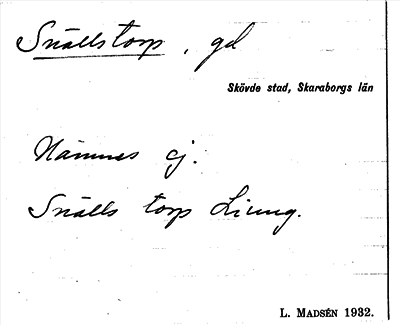 Snällstorp, gd
Skövde stad, Skaraborgs län
Nämnes ej.
Snälls torp Ljung.
L. MADSÉN 1932.